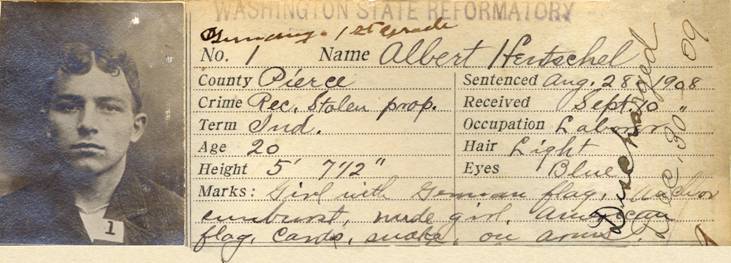 WASHINGTON STATE REFORMATORY
Germany - 1st Grade
No. 1 Name Albert Hertschel
County Pierce Sentenced Aug. 28 - 1908
Crime Rec. Stolen prop. Received Sept 10 "
Term Ind. Occupation Labor
Age 20 Hair Light
Height 5' 7 1/2" Eyes Blue
Marks: Girl with German flag, Anchor
sunburst, nude girl, American
flag, cards, snake, on arms.
Discharged
Dec. 30 - 09
1